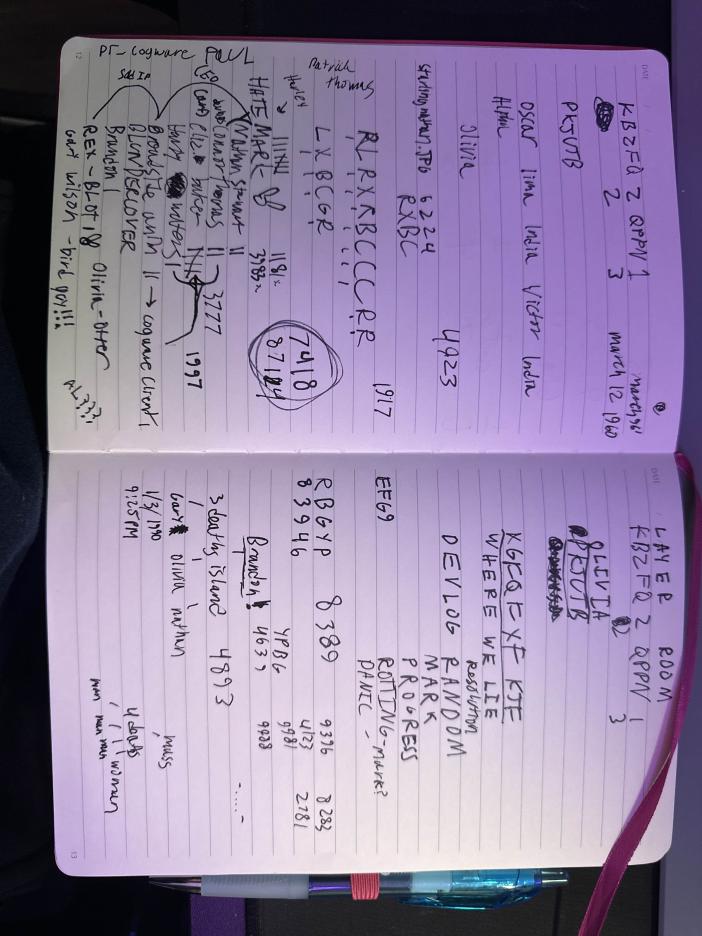 DATE
March 96'
KBZFQ 2 QPPN 1
2 3
march 12 1960
PKJVTB
oscar lima India Victor India
Alpha
Olivia
4923
starlingnathan.JPG 6224
RXBC
1917
RLRXRBCCCRR
LXBCGR
Patrick
Thomas
7418
8714
Harley
1181x
3983x
HATE MARK
Nathan Stewart II
Connor Thomas II
3777
Eliz baker
1997
Henry waters I
Broadside with II → cogware client,
BLUNDERCOVER
Brandon I
REX - BLOT 18
Olivia-Otter
Gary wilson - bird guy!!!
AL????
PI-cogware PAUL
12
DATE
LAYER ROOM
KBZFQ 2 QPPN 1
2 3
OLIVIA
PKJUTB
XGFQF XF KJF
WHERE WE LIE
Resolution
DEVLOG RANDOM
MARK
PROGRESS
EFG9
ROTTING - Mark?
PANIC -
RBGYP 8389
9396
8283
83946
4123
2781
YPBG
9981
Brandon!
4639
9988
-....-
3 deaths island 4893
Gary olivia nathan
1/3/1990
9:25PM
mass
4 deaths
man man man woman
13